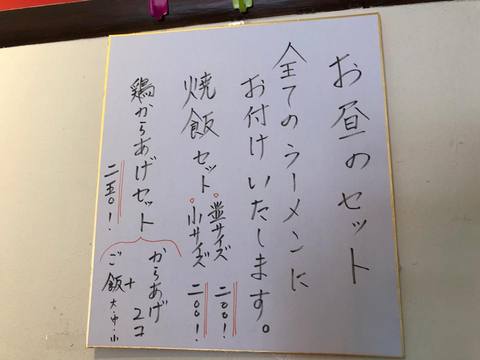 お昼のセット
全てのラーメンに
お付けいたします。
焼飯セット
。並サイズ 二〇〇!
。小サイズ 二〇〇!
鶏からあげセット
二五〇!
からあげ 2コ
+
ご飯 大・中・小